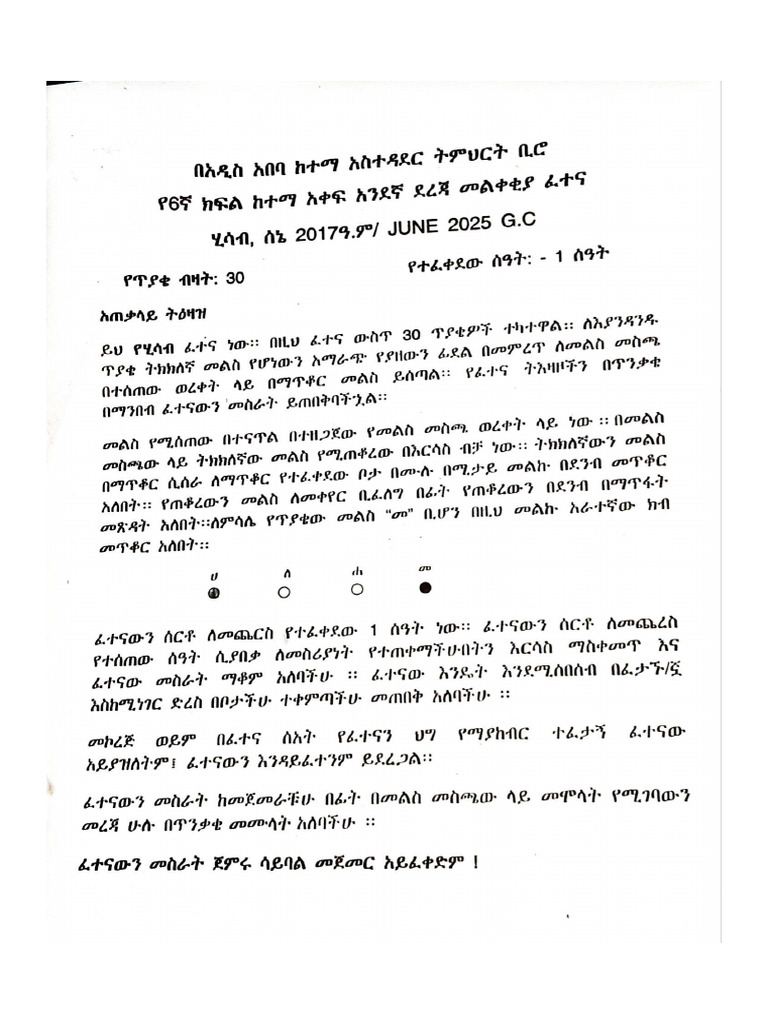 በአዲስ አበባ ከተማ አስተዳደር ትምህርት ቢሮ
የ6ኛ ክፍል ከተማ አቀፍ አንደኛ ደረጃ መልቀቂያ ፈተና
ሂሳብ, ሰኔ 2017ዓ.ም/ JUNE 2025 G.C
የጥያቄ ብዛት: 30 የተፈቀደው ሰዓት: - 1 ሰዓት
አጠቃላይ ትዕዛዝ
ይህ የሂሳብ ፈተና ነው። በዚህ ፈተና ውስጥ 30 ጥያቄዎች ተካተዋል። ለእያንዳንዱ
ጥያቄ ትክክለኛ መልስ የሆነውን አማራጭ የያዘውን ፊደል በመምረጥ ለመልስ መስጫ
በተሰጠው ወረቀት ላይ በማጥቆር መልስ ይሰጣል። የፈተና ትእዛዞችን በጥንቃቄ
በማንበብ ፈተናውን መስራት ይጠበቅባችኋል።
መልስ የሚሰጠው በተናጥል በተዘጋጀው የመልስ መስጫ ወረቀት ላይ ነው ። በመልስ
መስጫው ላይ ትክክለኛው መልስ የሚጠቆረው በእርሳስ ብቻ ነው። ትክክለኛውን መልስ
በማጥቆር ሲሰራ ለማጥቆር የተፈቀደው ቦታ በሙሉ በሚታይ መልኩ በደንብ መጥቆር
አለበት። የጠቆረውን መልስ ለመቀየር ቢፈለግ በፊት የጠቆረውን በደንብ በማጥፋት
መጽዳት አለበት።ለምሳሌ የጥያቄው መልስ “መ” ቢሆን በዚህ መልኩ አራተኛው ክብ
መጥቆር አለበት።
ሀ ለ ሐ መ
ፈተናውን ሰርቶ ለመጨርስ የተፈቀደው 1 ሰዓት ነው። ፈተናውን ሰርቶ ለመጨረስ
የተሰጠው ሰዓት ሲያበቃ ለመስሪያነት የተጠቀማችሁበትን እርሳስ ማስቀመጥ እና
ፈተናው መስራት ማቆም አለባችሁ ። ፈተናው እንዴት እንደሚሰበሰብ በፈታኙ/ኟ
እስከሚነገር ድረስ በቦታችሁ ተቀምጣችሁ መጠበቅ አለባችሁ ።
መኮረጅ ወይም በፈተና ሰአት የፈተናን ህግ የማያከብር ተፈታኝ ፈተናው
አይያዝለትም፤ ፈተናውን እንዳይፈተንም ይደረጋል።
ፈተናውን መስራት ከመጀመራቹሁ በፊት በመልስ መስጫው ላይ መሞላት የሚገባውን
መረጃ ሁሉ በጥንቃቄ መሙላት አለባችሁ ።
ፈተናውን መስራት ጀምሩ ሳይባል መጀመር አይፈቀድም !